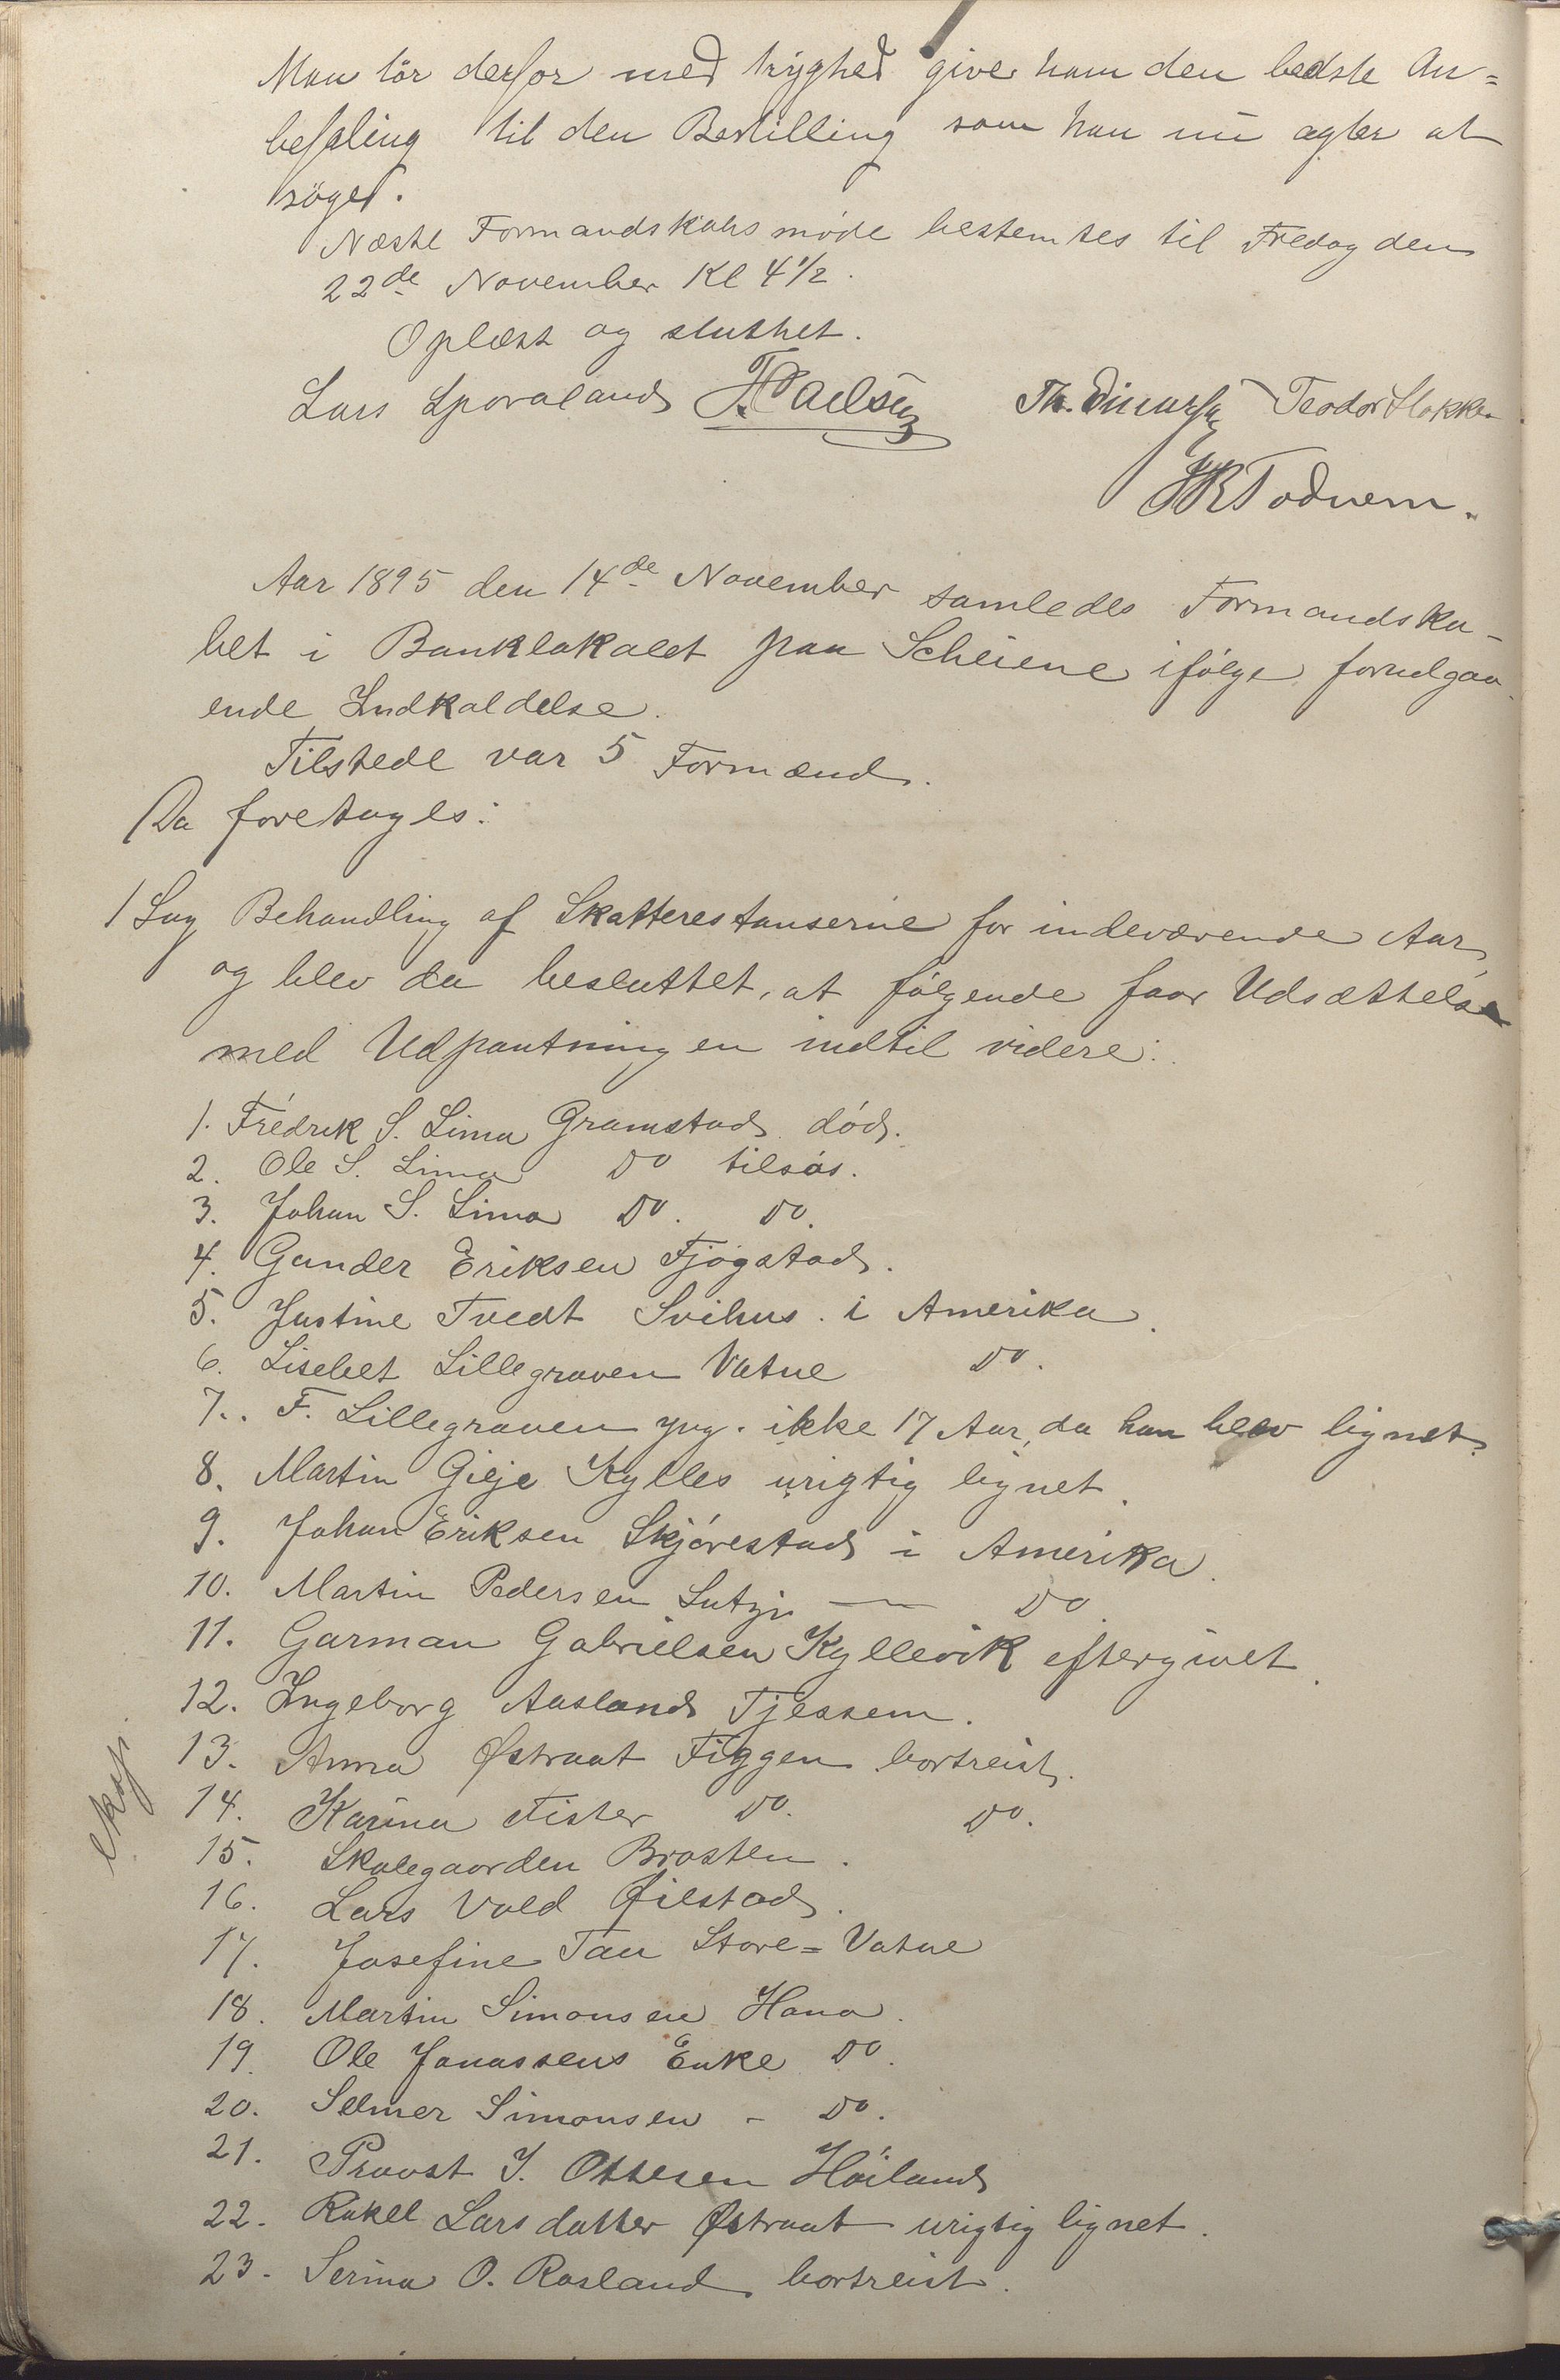 Man tör derfor med tryghed give ham den bedste An=
befaling til den Bestilling som han nu agter at
søge.
Næste Formandskabsmøde bestemtes til Fredag den
22de November Kl 4 1/2.
Oplæst og sluttet.
Lars Sporaland T. Paulsen Th. Einarsen Teodor Stokken
Todnem.
Aar 1895 den 14de November samledes Formandska-
bet i Banklokalet paa Scheiene ifølge forudgaa-
ende Indkaldelse.
Tilstede var 5 Formænd.
Da foretages:
1 Sag Behandling af Skatterestanserne for indeværende Aar,
og blev da besluttet, at følgende faar Udsættelse
med Udpantningen indtil videre:
1. Fredrik S. Lima Gramstad død.
2. Ole S. Lima Do tilsøs.
3. Johan S. Lima Do. Do.
4. Gunder Eriksen Fjogstad.
5. Justine Tvedt Svihus i Amerika.
6. Lisebet Lillegraven Vatne Do.
7. F. Lillegraven yng. ikke 17 Aar, da han blev lignet.
8. Martin Gilje Kylles urigtig lignet.
9. Johan Eriksen Skjørestad i Amerika.
10. Martin Pedersen Lutzi — Do.
11. Garman Gabrielsen Kyllevik eftergivet.
12. Ingeborg Aasland Tjessem.
13. Anna Østraat Figgen bortreist.
14. Karina Fister Do. Do.
15. Skolegaarden Brasten.
16. Lars Vold Øilstad.
17. Josefine Tau Store=Vatne
18. Martin Simonsen Hana.
19. Ole Jonassens Enke Do.
20. Selmer Simonsen - Do.
21. Provst J. Ottesen Høiland
22. Rakel Larsdatter Østraat urigtig lignet.
23. Serina O. Rosland bortreist.
eksp.